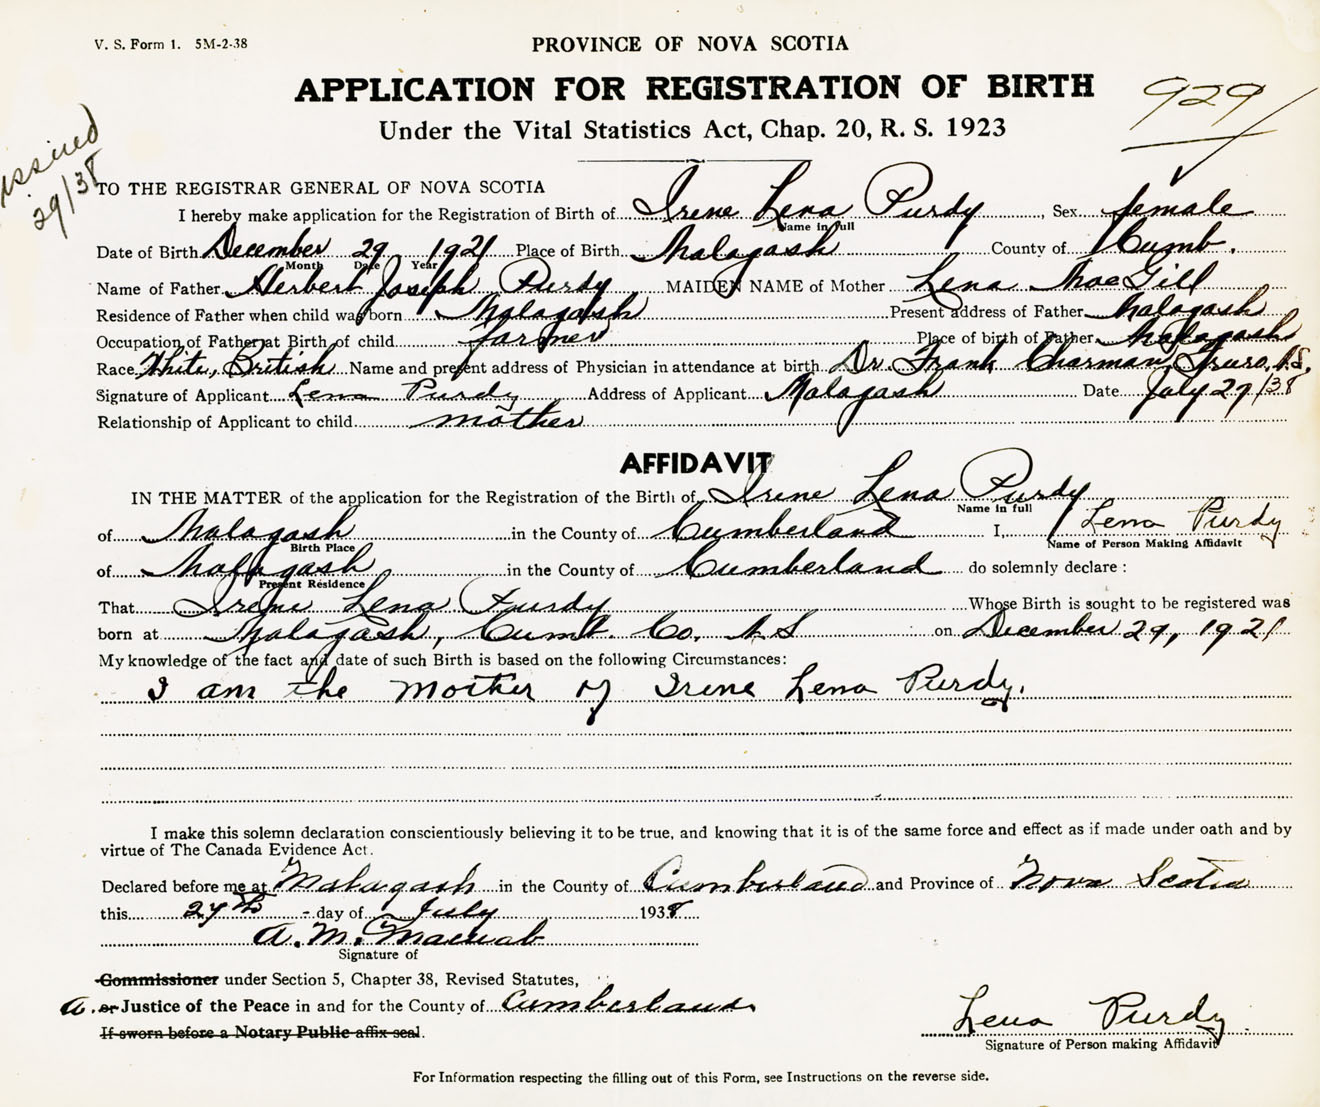 V. S. Form 1. 5M-2-38
PROVINCE OF NOVA SCOTIA
APPLICATION FOR REGISTRATION OF BIRTH
929
Under the Vital Statistics Act, Chap. 20, R. S. 1923
issued
29/38
TO THE REGISTRAR GENERAL OF NOVA SCOTIA
I hereby make application for the Registration of Birth of Irene Lena Purdy, Sex female
Name in full
Date of Birth December 29 1921 Place of Birth Malagash County of Cumb.
Month Date Year
Name of Father Herbert Joseph Purdy MAIDEN NAME of Mother Lena MacGill
Residence of Father when child was born Malagash Present address of Father Malagash
Occupation of Father at Birth of child farmer Place of birth of Father Malagash
Race White, British Name and present address of Physician in attendance at birth Dr. Frank Charman, Truro, N.S.
Signature of Applicant Lena Purdy Address of Applicant Malagash Date July 29/38
Relationship of Applicant to child mother
AFFIDAVIT
IN THE MATTER of the application for the Registration of the Birth of Irene Lena Purdy
Name in full
of Malagash in the County of Cumberland I, Lena Purdy
Birth Place Name of Person Making Affidavit
of Malagash in the County of Cumberland do solemnly declare :
Present Residence
That Irene Lena Purdy Whose Birth is sought to be registered was
born at Malagash, Cumb. Co. N S on December 29, 1921
My knowledge of the fact and date of such Birth is based on the following Circumstances:
I am the mother of Irene Lena Purdy.
I make this solemn declaration conscientiously believing it to be true, and knowing that it is of the same force and effect as if made under oath and by
virtue of The Canada Evidence Act.
Declared before me at Malagash in the County of Cumberland and Province of Nova Scotia
this 27th day of July 1938
A. M. Macnab
Signature of
Commissioner under Section 5, Chapter 38, Revised Statutes,
a. or Justice of the Peace in and for the County of Cumberland
If sworn before a Notary Public affix seal.
Lena Purdy
Signature of Person making Affidavit
For Information respecting the filling out of this Form, see Instructions on the reverse side.